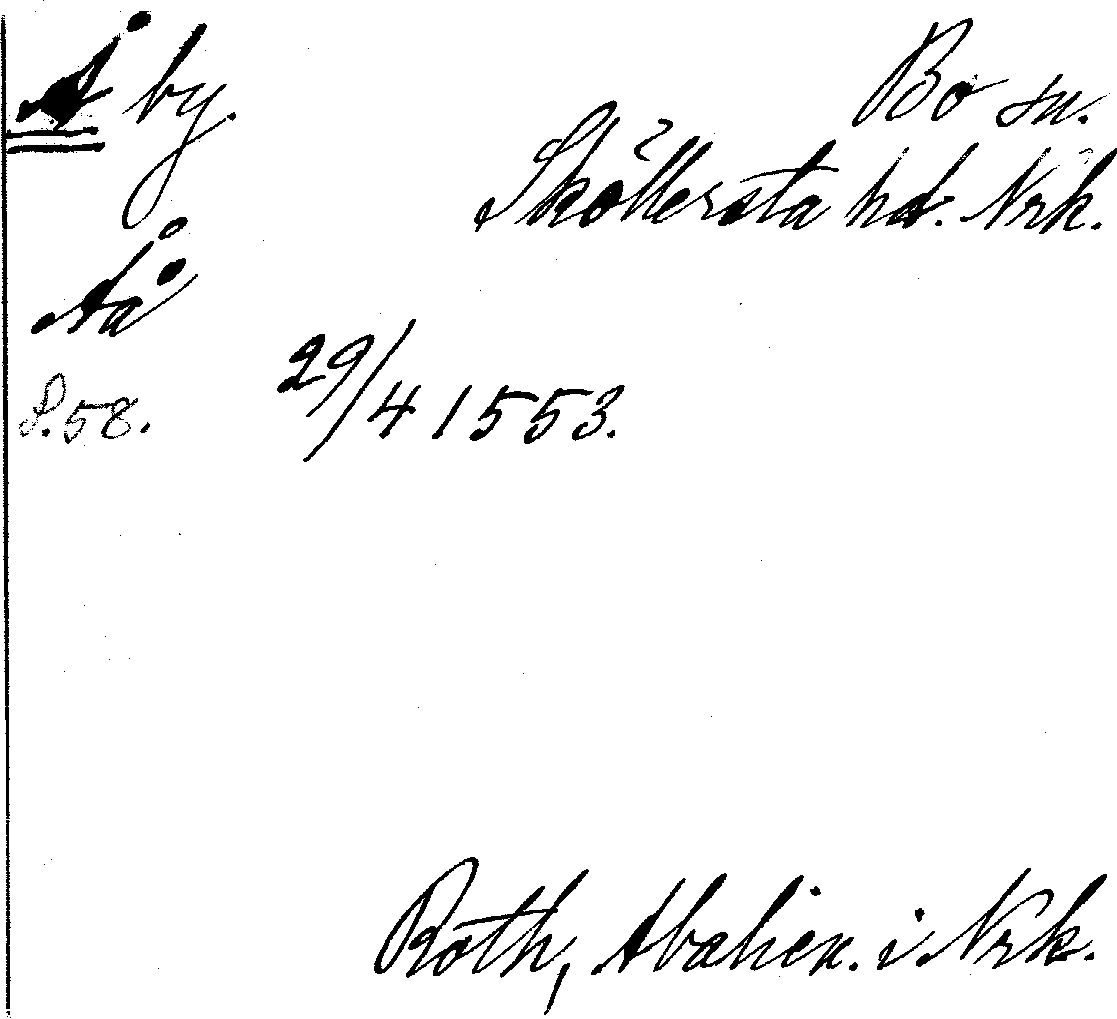 Å by.
Bo sn.
Sköllersta hd. Nrk.
Aå
S. 58.
29/4 1553.
Roth, Abalien. i Nrk.